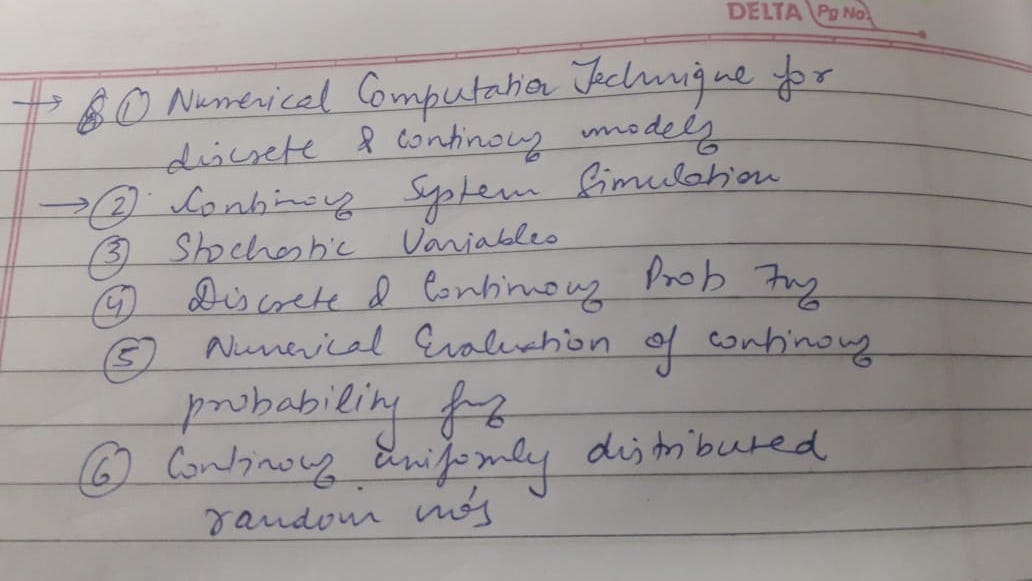 DELTA Pg No.
→ ① Numerical Computation Technique for
discrete & continous models
→ ② Continous System Simulation
③ Stochastic Variables
④ Discrete & Continous Prob Fns
⑤ Numerical Evaluation of continous
probability fns
⑥ Continous uniformly distributed
random no's